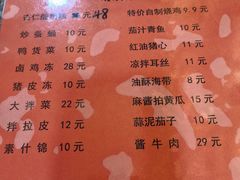 特价自制烧鸡9.9元
炒蚕蛹 10元
茄汁青鱼 10元
鸭货菜 10元
红油猪心 11元
卤鸡冻 28元
凉拌耳丝 11元
猪皮冻 10元
油酥海带 8元
大拌菜 22元
麻酱拍黄瓜 15元
拌拉皮 12元
蒜泥茄子 10元
素什锦 10元
酱牛肉 29元